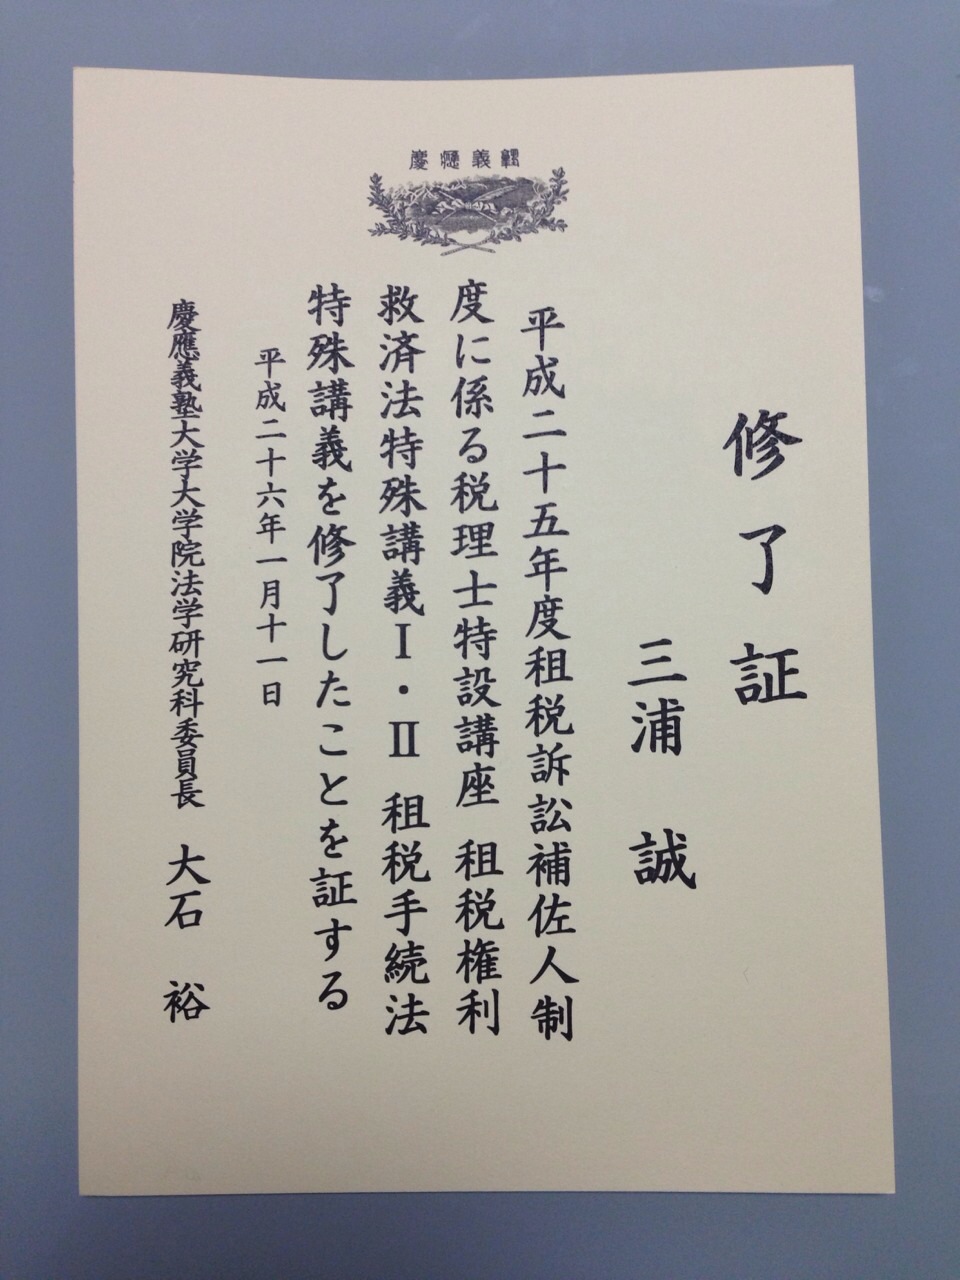 慶應義塾
修了証
三浦 誠
平成二十五年度租税訴訟補佐人制
度に係る税理士特設講座 租税権利
救済法特殊講義Ⅰ・Ⅱ 租税手続法
特殊講義を修了したことを証する
平成二十六年一月十一日
慶應義塾大学大学院法学研究科委員長 大石 裕